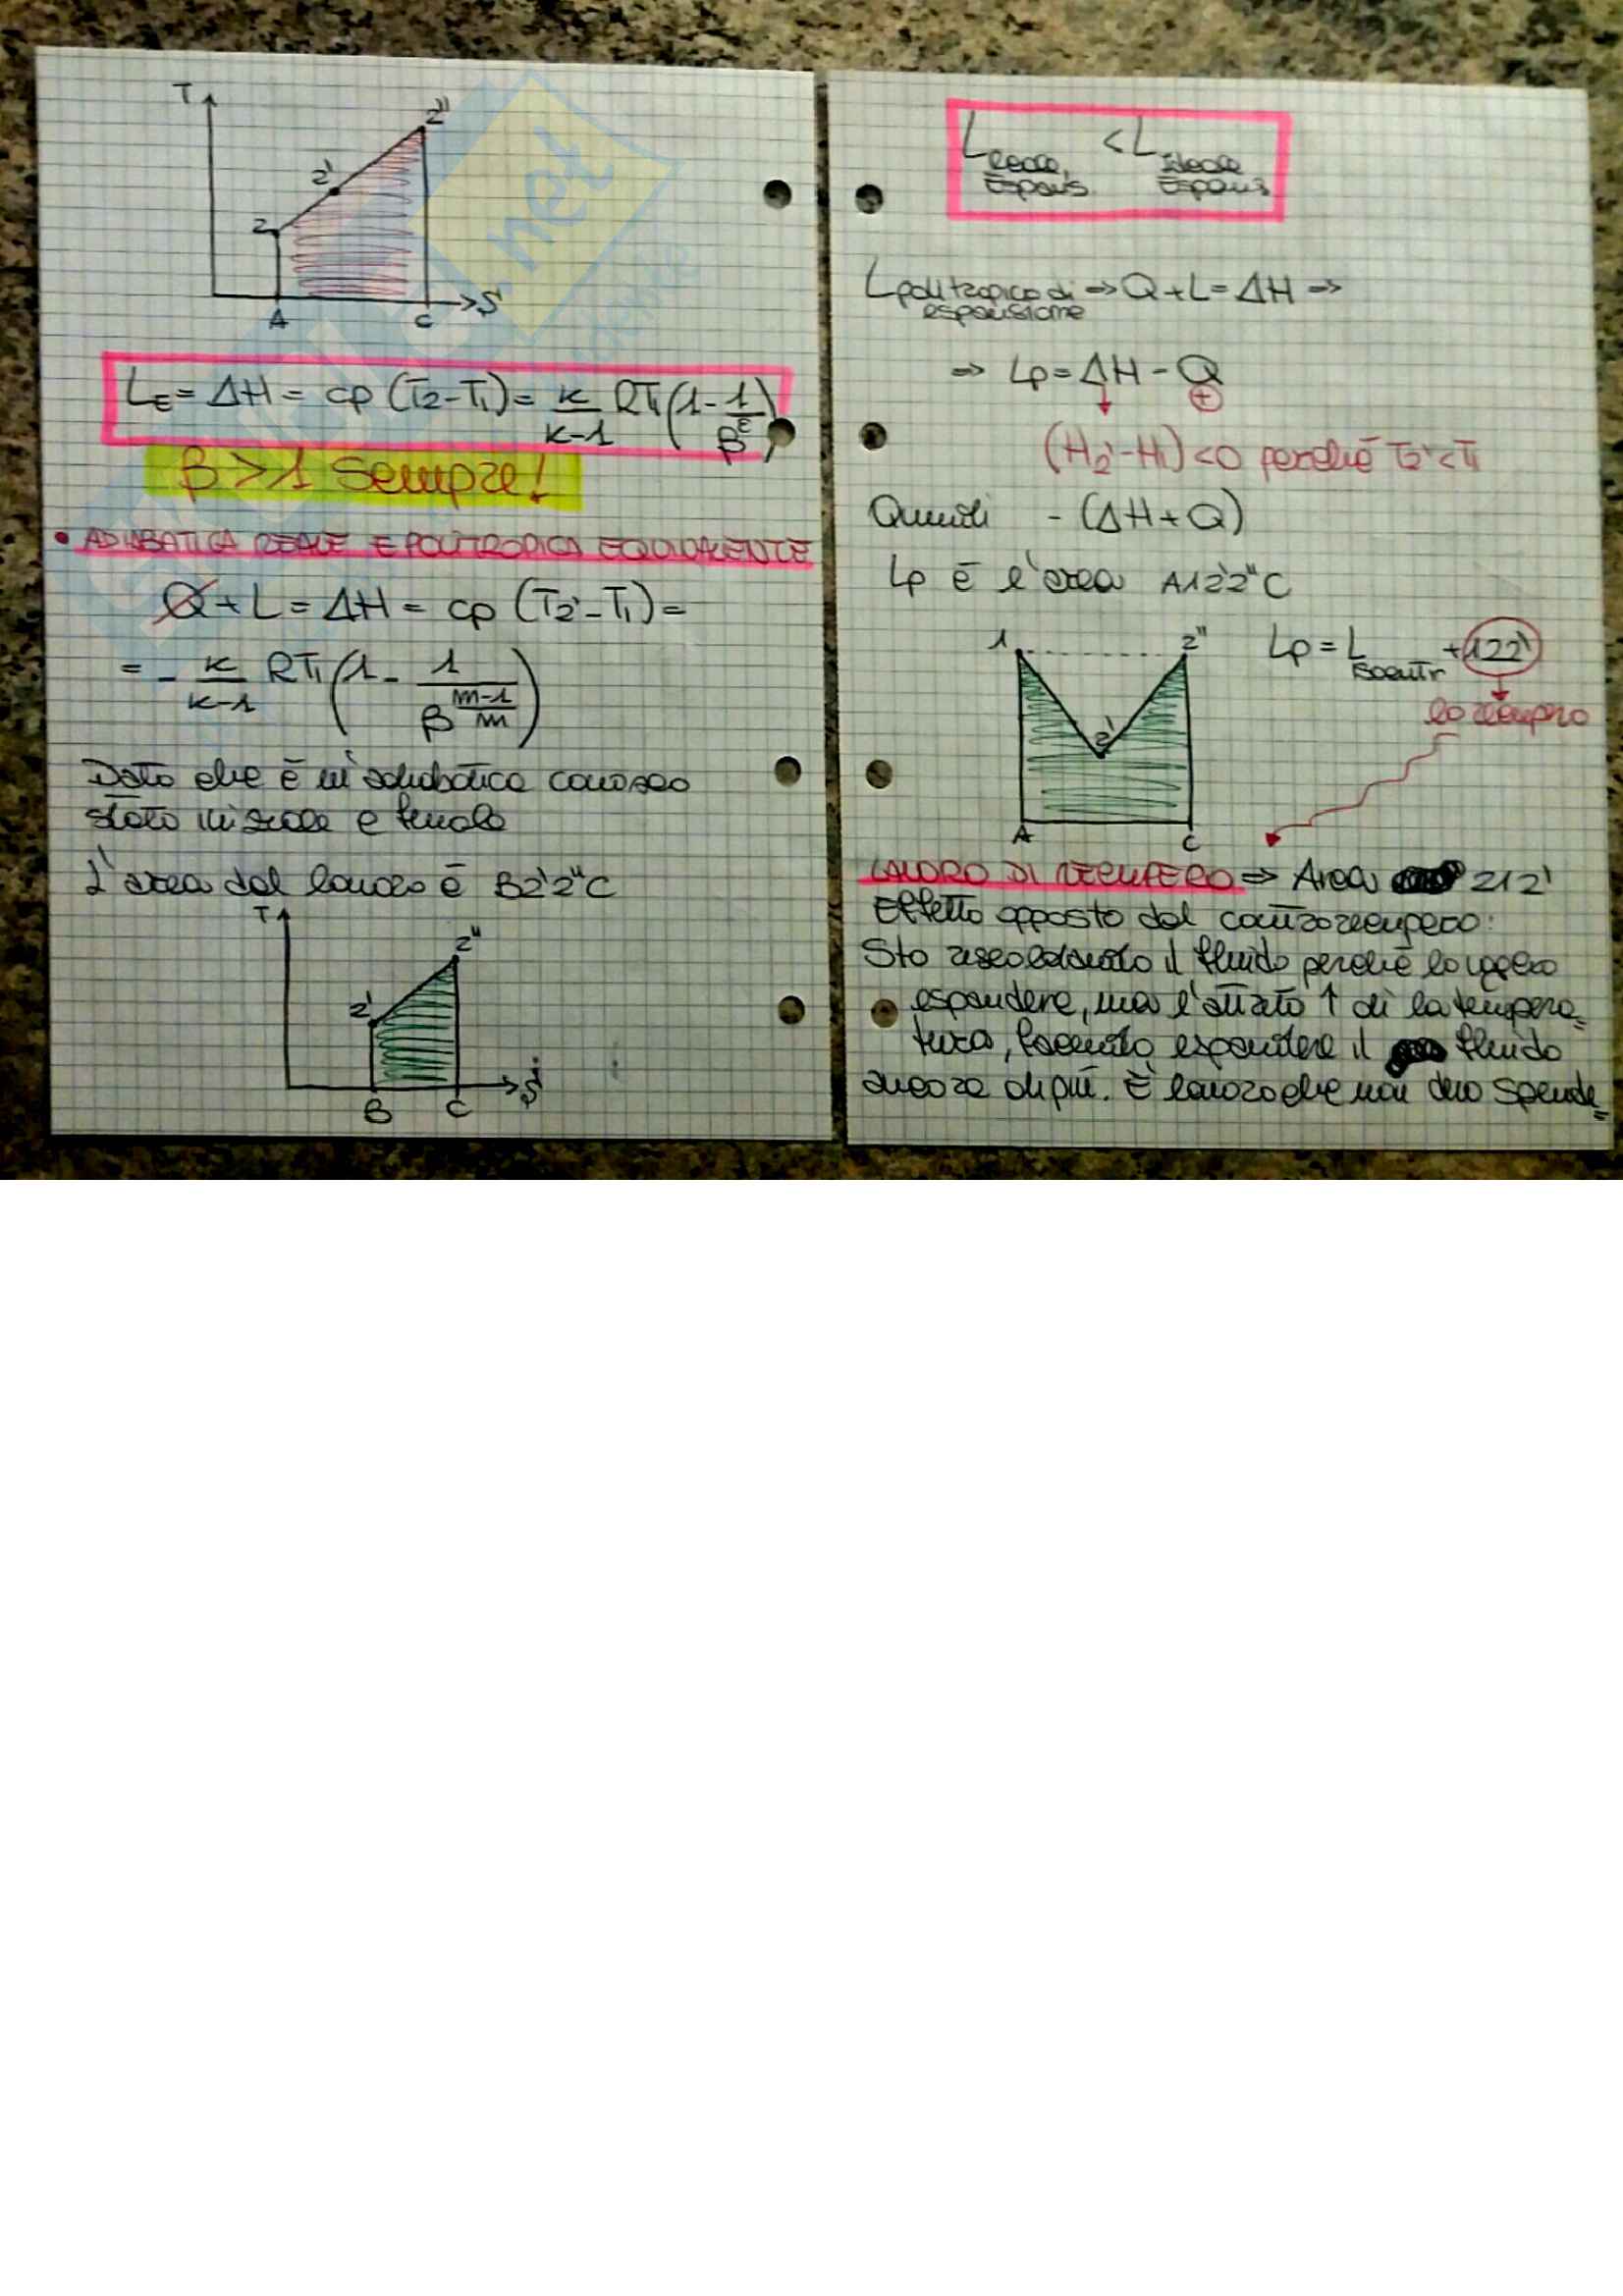 T
2''
2'
2
A
C
S
L_E = ΔH = cp (T2-T1) = k/(k-1) RT1 (1 - 1/β^ε)
β > 1 Sempre!
• ADIABATICA REALE E POLITROPICA EQUIVALENTE
Q + L = ΔH = cp (T2' - T1) =
= - k/(k-1) RT1 (1 - 1/β^((m-1)/m))
Dato che è un'adiabatica conosco
stato iniziale e finale
L'area del lavoro è B2'2''C
T
2''
2'
B
C
S
L Reale, Espans. < L Ideale Espans
L politropico di espansione ⇒ Q + L = ΔH ⇒
⇒ Lp = ΔH - Q
+
(H2' - H1) < 0 perché T2' < T1
Quindi - (ΔH + Q)
Lp è l'area A12'2''C
1
2''
2'
A
C
Lp = L Isoentr + 122'
lo recupero
LAVORO DI RECUPERO ⇒ Area 212'
Effetto opposto dal controrecupero:
Sto riscaldando il fluido perché lo voglio
espandere, ma l'attrito ↑ di la tempera=
tura, facendo espandere il fluido
ancora di più. È lavoro che non devo spende=